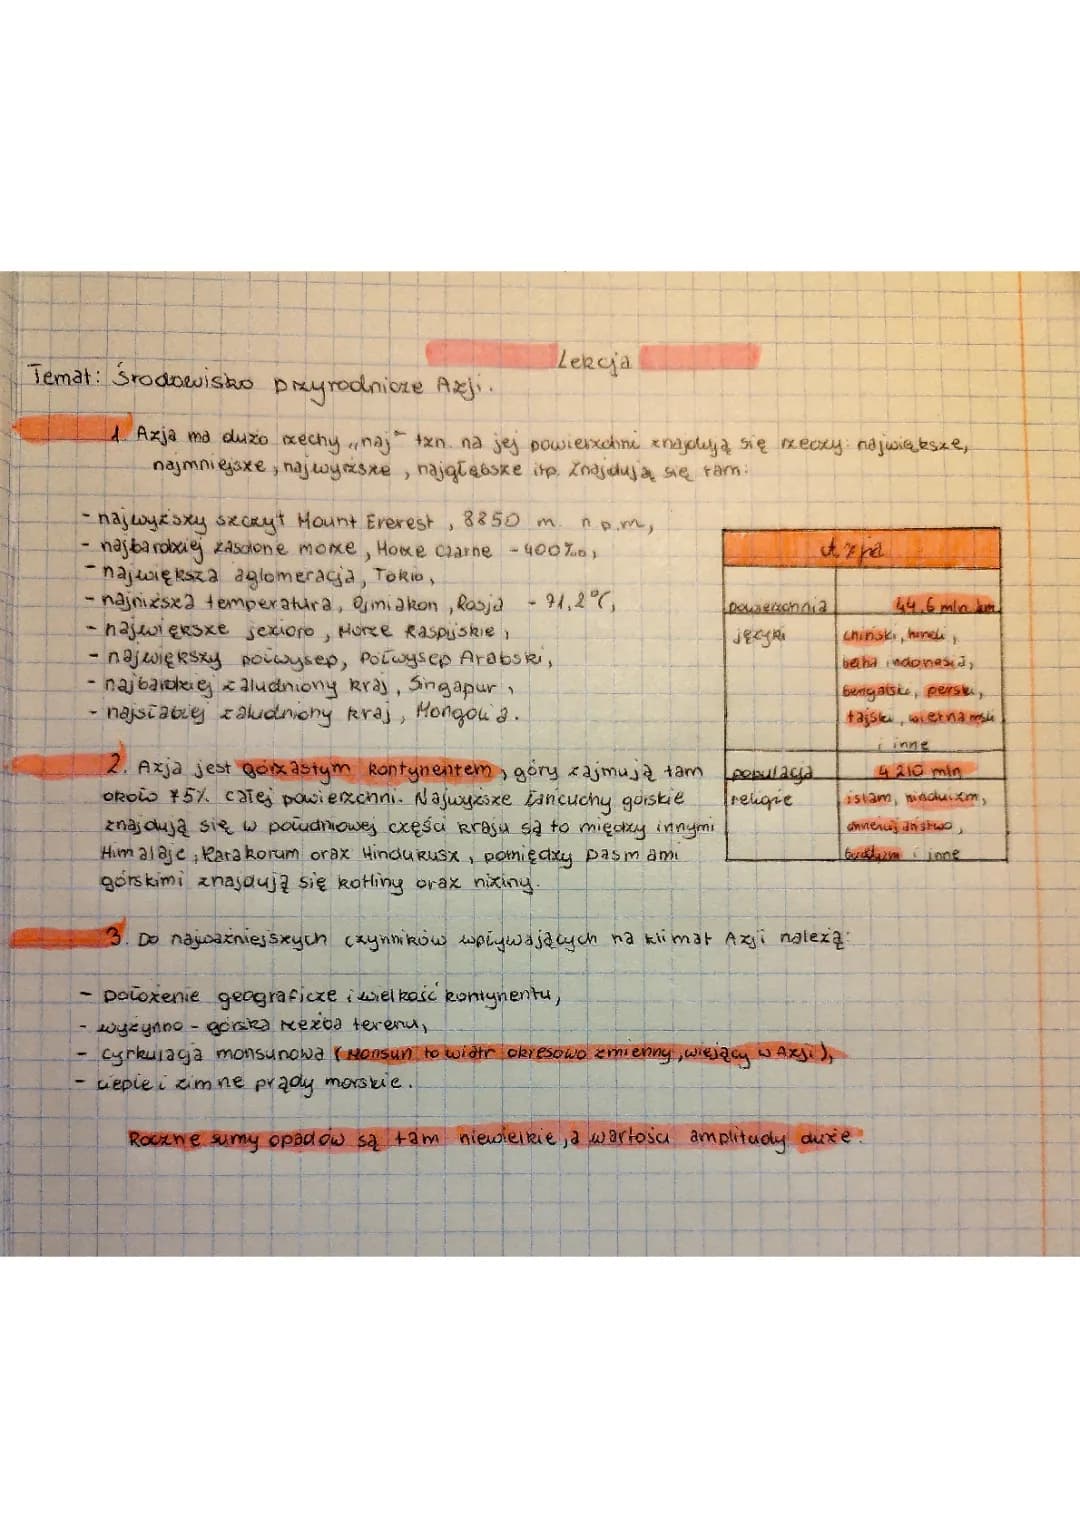 Lekcja
Temat: Środowisko przyrodnicze Azji.
1. Azja ma dużo rzechy „naj" tzn. na jej powierzchni znajdują się rzeczy: największe,
najmniejsze, najwyższe, najgłębsze itp. Znajdują się tam:
- najwyższy szczyt Mount Everest, 8850 m. n.p.m,
- najbardziej zasolone morze, Morze Czarne - 400‰,
- największa aglomeracja, Tokio,
- najniższa temperatura, Ojmiakon, Rosja - 71,2°C,
- największe jezioro, Morze Kaspijskie,
- największy półwysep, Półwysep Arabski,
- najbardziej zaludniony kraj, Singapur,
- najsłabiej zaludniony kraj, Mongolia.
Azja
powierzchnia 44,6 mln km
języki chiński, hindi,
baha indonesia,
bengalski, perski,
tajski, wietnamski
i inne
populacja 4 210 mln
religie islam, hinduizm,
chrześcijaństwo,
buddyzm i inne
2. Azja jest górzastym kontynentem, góry zajmują tam
około 75% całej powierzchni. Najwyższe łańcuchy górskie
znajdują się w południowej części kraju są to między innymi
Himalaje, Karakorum oraz Hindukusz, pomiędzy pasmami
górskimi znajdują się kotliny oraz niziny.
3. Do najważniejszych czynników wpływających na klimat Azji należą:
- położenie geograficze i wielkość kontynentu,
- wyżynno - górska rzeźba terenu,
- cyrkulacja monsunowa (Monsun to wiatr okresowo zmienny, wiejący w Azji),
- ciepłe i zimne prądy morskie.
Roczne sumy opadów są tam niewielkie, a wartości amplitudy duże.